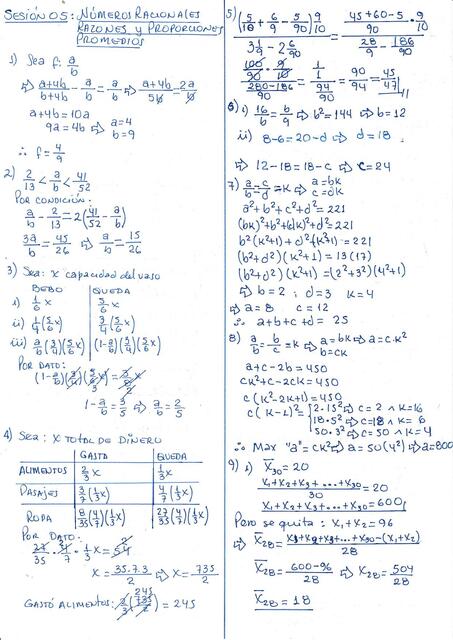 SESIÓN 05: NÚMEROS RACIONALES
RAZONES Y PROPORCIONES
PROMEDIOS
1) Sea f: a/b
⇒ (a+4b)/(b+4b) - a/b = a/b ⇒ (a+4b)/5b = 2a/b
a+4b=10a
9a=4b ⇒ a=4
b=9
∴ f=4/9
2) 2/13 < a/b < 41/52
POR CONDICIÓN:
a/b - 2/13 = 2(41/52 - a/b)
3a/b = 45/26 ⇒ a/b = 15/26
3) Sea: x capacidad del vaso
BEBO | QUEDA
i) 1/6 x | 5/6 x
ii) 1/4(5/6 x) | 3/4(5/6 x)
iii) a/b(3/4)(5/6 x) | (1-a/b)(3/4)(5/6 x)
POR DATO:
(1-a/b)(3/4)(5/6 x) = 3/8 x
1-a/b = 3/5 ⇒ a/b = 2/5
4) Sea: x TOTAL DE DINERO
GASTO | QUEDA
ALIMENTOS | 2/3 x | 1/3 x
PASAJES | 3/7(1/3 x) | 4/7(1/3 x)
ROPA | 8/35(4/7)(1/3 x) | 27/35(4/7)(1/3 x)
POR DATO:
27/35 · 4/7 · 1/3 x = 54
x = 35.7.3/2 ⇒ x = 735/2
GASTÓ ALIMENTOS: 2/3(735/2) = 245
5) (5/18 + 6/9 - 5/90) 9/10
3 1/9 - 2 6/90
(45+60-5)/90 · 9/10
28/9 - 186/90
100/90 · 9/10
(280-186)/90
1/1
94/90
= 90/94 = 45/47 //
6) i) 16/b = b/9 ⇒ b²=144 ⇒ b=12
ii) 8-6=20-d ⇒ d=18
⇒ 12-18=18-c ⇒ c=24
7) a/b = c/d = k ⇒ a=bk
c=dk
a²+b²+c²+d²=221
(bk)²+b²+(dk)²+d²=221
b²(k²+1)+d²(k²+1)=221
(b²+d²)(k²+1)=13(17)
(b²+d²)(k²+1)=(2²+3²)(4²+1)
⇒ b=2 ; d=3 k=4
⇒ a=8 c=12
∴ a+b+c+d= 25
8) a/b = b/c = k ⇒ a=bk ⇒ a=c.k²
b=ck
a+c-2b=450
ck²+c-2ck=450
c(k²-2k+1)=450
c(k-1)² = 2·15² ⇒ c=2 ∧ k=16
18·5² ⇒ c=18 ∧ k=6
50·3² ⇒ c=50 ∧ k=4
∴ Max "a"=ck² ⇒ a=50(4²) ⇒ a=800
9) i) X̄30 = 20
(x1+x2+x3+...+x30)/30 = 20
x1+x2+x3+...+x30=600
Pero se quita: x1+x2=96
⇒ X̄28 = (x1+x2+x3+...+x30-(x1+x2))/28
X̄28 = (600-96)/28 ⇒ X28 = 504/28
X̄28 = 18